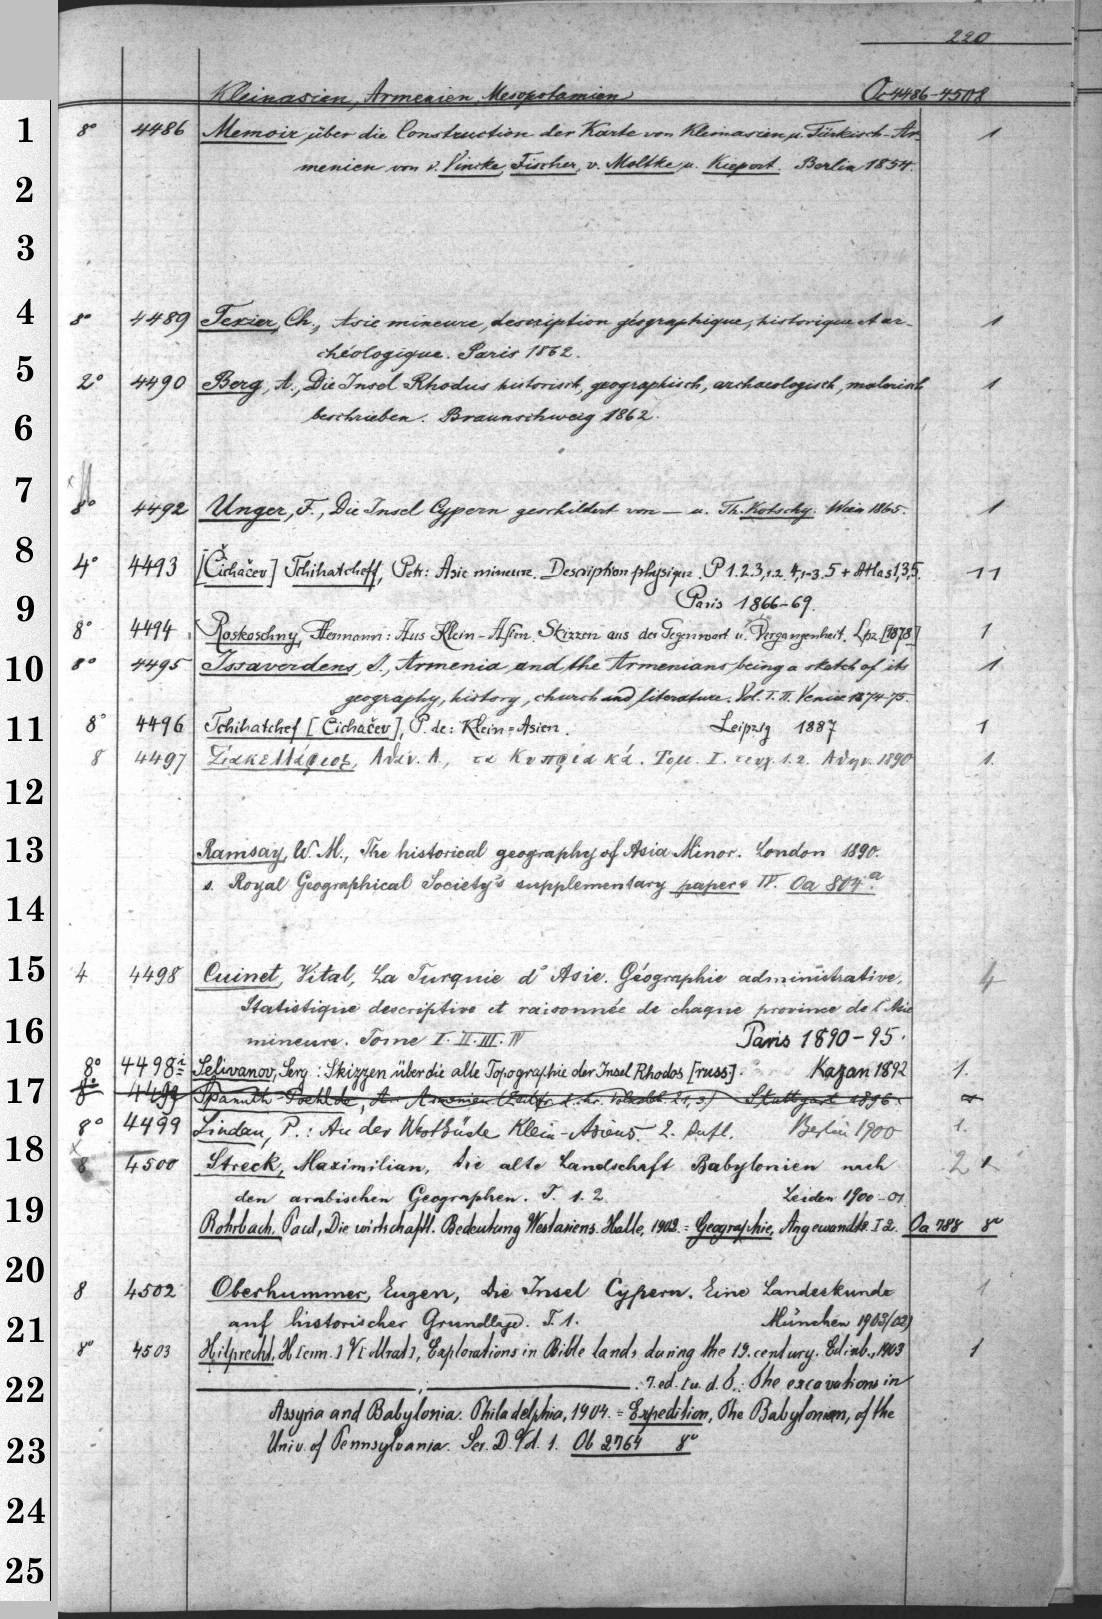 220
Kleinasien, Armenien, Mesopotamien Oc 4486-4508
1 8° 4486 Memoir über die Construction der Karte von Kleinasien u. Türkisch-Ar- 1
menien von v. Vincke, Fischer, v. Moltke u. Kiepert. Berlin 1854.
2
3
4 8° 4489 Texier, Ch., Asie mineure, description géographique, historique et ar- 1
chéologique. Paris 1862.
5 2° 4490 Berg, A., Die Insel Rhodus historisch, geographisch, archaeologisch, malerisch 1
6 beschrieben. Braunschweig 1862.
7 8° 4492 Unger, F., Die Insel Cypern geschildert von — u. Th. Kotschy. Wien 1865. 1
8 4° 4493 [Čichačev] Tchihatcheff, Petr: Asie mineure. Description physique. P 1.2.3,1.2. 4,1-3. 5 + Atlas 1,3,5. 11
9 Paris 1866-69.
8° 4494 Roskoschny, Hermann: Aus Klein-Asien. Skizzen aus der Gegenwart u. Vergangenheit. Lpz. [1878] 1
10 8° 4495 Issaverdens, J., Armenia and the Armenians being a sketch of its 1
geography, history, church and literature. Vol. I. II. Venice 1874-75.
11 8° 4496 Tchihatchef [Čichačev], P. de: Klein-Asien. Leipzig 1887 1
8 4497 Σακελλάριος, Αθαν. Α., τα Κυπριακά. Τομ. I. τευχ. 1.2. Αθην. 1890 1.
12
13 Ramsay, W. M., The historical geography of Asia Minor. London 1890.
s. Royal Geographical Society's supplementary papers IV. Oa 804a.
14
15 4 4498 Cuinet, Vital, La Turquie d'Asie. Géographie administrative, 4
Statistique descriptive et raisonnée de chaque province de l'Asie
16 mineure. Tome I. II. III. IV Paris 1890-95.
8° 4498i Selivanov, Serg: Skizzen über die alte Topographie der Insel Rhodos [russ]. Kazan 1892 1.
17 8° 4499 Armenien Stuttgart 1896.
8° 4499 Lindau, P.: An der Westküste Klein-Asiens. 2. Aufl. Berlin 1900 1.
18 8 4500 Streck, Maximilian, Die alte Landschaft Babylonien nach 2
den arabischen Geographen. T. 1. 2. Leiden 1900-01
19 Rohrbach, Paul, Die wirtschaftl. Bedeutung Westasiens. Halle, 1902. = Geographie, Angewandte. I 2. Oa 788 8°
20 8 4502 Oberhummer, Eugen, Die Insel Cypern. Eine Landeskunde 1
21 auf historischer Grundlage. T. 1. München 1903/02)
8° 4503 Hilprecht, H[erm.] V[olrat], Explorations in Bible lands during the 19. century. Edinb., 1903 1
22 —, — . 7. ed. [u. d. T.: The excavations in
Assyria and Babylonia. Philadelphia, 1904. = Expedition, The Babylonian, of the
23 Univ. of Pennsylvania. Ser. D. Vol. 1. Ob 2764 8°
24
25